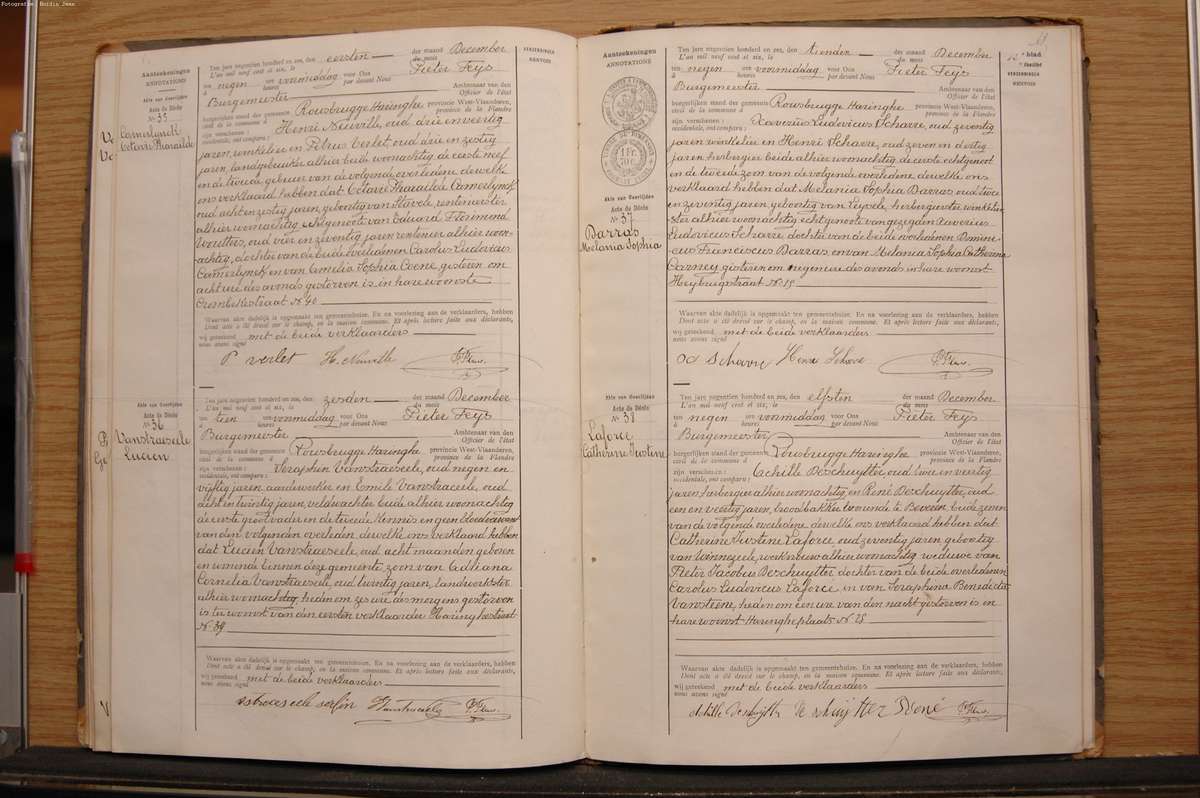 Fotografie: Boidin Jean
Aanteekeningen
ANNOTATIONS
Akte van Overlijden
Acte de Décès
Nr 35
Camerlynck
Octavie Pharaïlde
Ten jare negentien honderd en zes, den eersten der maand December
L'an mil neuf cent et six, le du mois
ten negen ure voormiddag voor Ons Pieter Feys
à heures par devant Nous
Burgemeester Ambtenaar van den
Officier de l'état
burgerlijken stand der gemeente Rousbrugge Haringhe provincie West-Vlaanderen,
civil de la commune d province de la Flandre
zijn verschenen: Henri Neuville, oud drie en veertig
occidentale, ont comparu:
jaren, winkelier en Petrus Verlet, oud drie en zestig
jaren, landgebruiker alhier beide woonachtig de eerste neef
en de tweede gebuur van de volgende overledene dewelke
ons verklaard hebben dat Octavie Pharaïlde Camerlynck
oud acht en zestig jaren, geboortig van Stavele, rentenierster
alhier woonachtig echtgenote van Eduard Florimond
Vruitters, oud vier en zeventig jaren rentenier alhier woon-
achtig, dochter van de beide overledenen Carolus Ludovicus
Camerlynck en van Amelia Sophia Coene, gisteren om
acht ure des avonds gestorven is in hare woonste
Crombekestraat Nr 40
Waarvan akte dadelijk is opgemaakt ten gemeentehuize. En na voorlezing aan de verklaarders, hebben
Dont acte a été dressé sur le champ, en la maison commune. Et après lecture faite aux déclarants,
wij geteekend met de beide verklaarders
nous avons signé
P verlet H. Neuville P. Feys
Akte van Overlijden
Acte de Décès
Nr 36
Vanstraeseele
Lucien
Ten jare negentien honderd en zes, den zesden der maand December
L'an mil neuf cent et six, le du mois
ten tien ure voormiddag voor Ons Pieter Feys
à heures par devant Nous
Burgemeester Ambtenaar van den
Officier de l'état
burgerlijken stand der gemeente Rousbrugge Haringhe provincie West-Vlaanderen,
civil de la commune d province de la Flandre
zijn verschenen: Seraphin Vanstraeseele, oud negen en
occidentale, ont comparu:
vijftig jaren, aardewerker en Emile Vanstraeseele, oud
acht en twintig jaren, veldwachter beide alhier woonachtig
de eerste grootvader en de tweede kennis en geen bloedverwant
van den volgenden overleden, dewelke ons verklaard hebben
dat Lucien Vanstraeseele, oud acht maanden geboren
en wonende binnen deze gemeente zoon van Adriana
Cornelia Vanstraeseele, oud twintig jaren, landwerkster
alhier woonachtig, heden om zes ure des morgens gestorven
is ter woonst van den eersten verklaarder Haringhestraat
Nr 39
Waarvan akte dadelijk is opgemaakt ten gemeentehuize. En na voorlezing aan de verklaarders, hebben
Dont acte a été dressé sur le champ, en la maison commune. Et après lecture faite aux déclarants,
wij geteekend met de beide verklaarders
nous avons signé
P. Feys
VERZENDINGEN
RENVOIS
Aanteekeningen
ANNOTATIONS
1 Fr.
Akte van Overlijden
Acte de Décès
Nr 37
Barras
Melania Sophia
Ten jare negentien honderd en zes, den tienden der maand December
L'an mil neuf cent et six, le du mois
ten negen ure voormiddag voor Ons Pieter Feys
à heures par devant Nous
Burgemeester Ambtenaar van den
Officier de l'état
burgerlijken stand der gemeente Rousbrugge Haringhe provincie West-Vlaanderen,
civil de la commune d province de la Flandre
zijn verschenen: Xaverius Ludovicus Scharre, oud zeventig
occidentale, ont comparu:
jaren winkelier en Henri Scharre, oud zeven en dertig
jaren herbergier beide alhier woonachtig de eerste echtgenoot
en de tweede zoon van de volgende overledene dewelke ons
verklaard hebben dat Melania Sophia Barras oud twee
en zeventig jaren, geboortig van Leysele, herbergierster winkelier-
ster alhier woonachtig echtgenoote van gezegden Xaverius
Ludovicus Scharre dochter van de beide overledenen Domini-
cus Franciscus Barras en van Melania Sophia Catherina
Carney gisteren om negen ure des avonds in hare woonst
Heybrugstraat Nr 18
Waarvan akte dadelijk is opgemaakt ten gemeentehuize. En na voorlezing aan de verklaarders, hebben
Dont acte a été dressé sur le champ, en la maison commune. Et après lecture faite aux déclarants,
wij geteekend met de beide verklaarders
nous avons signé
Scharre Henri Scharre P. Feys
Akte van Overlijden
Acte de Décès
Nr 38
Laforce
Catherine Justine
Ten jare negentien honderd en zes, den elfsten der maand December
L'an mil neuf cent et six, le du mois
ten negen ure voormiddag voor Ons Pieter Feys
à heures par devant Nous
Burgemeester Ambtenaar van den
Officier de l'état
burgerlijken stand der gemeente Rousbrugge Haringhe provincie West-Vlaanderen,
civil de la commune d province de la Flandre
zijn verschenen: Achille Deschuytter, oud twee en veertig
occidentale, ont comparu:
jaren herbergier alhier woonachtig, en René Deschuytter, oud
een en veertig jaren, broodbakker wonende te Beveren, beide zonen
van de volgende overledene dewelke ons verklaard hebben dat
Catherine Justine Laforce oud zeventig jaren geboortig
van Winnezeele, werkvrouw alhier woonachtig, weduwe van
Pieter Jacobus Deschuytter, dochter van de beide overledenen
Carolus Ludovicus Laforce en van Seraphina Benedicta
Vansteene, heden om een ure van den nacht gestorven is in
hare woonst Haringheplaats Nr 28
Waarvan akte dadelijk is opgemaakt ten gemeentehuize. En na voorlezing aan de verklaarders, hebben
Dont acte a été dressé sur le champ, en la maison commune. Et après lecture faite aux déclarants,
wij geteekend met de beide verklaarders
nous avons signé
Achille Deschuytter Deschuytter René P. Feys
blad
feuillet
VERZENDINGEN
RENVOIS